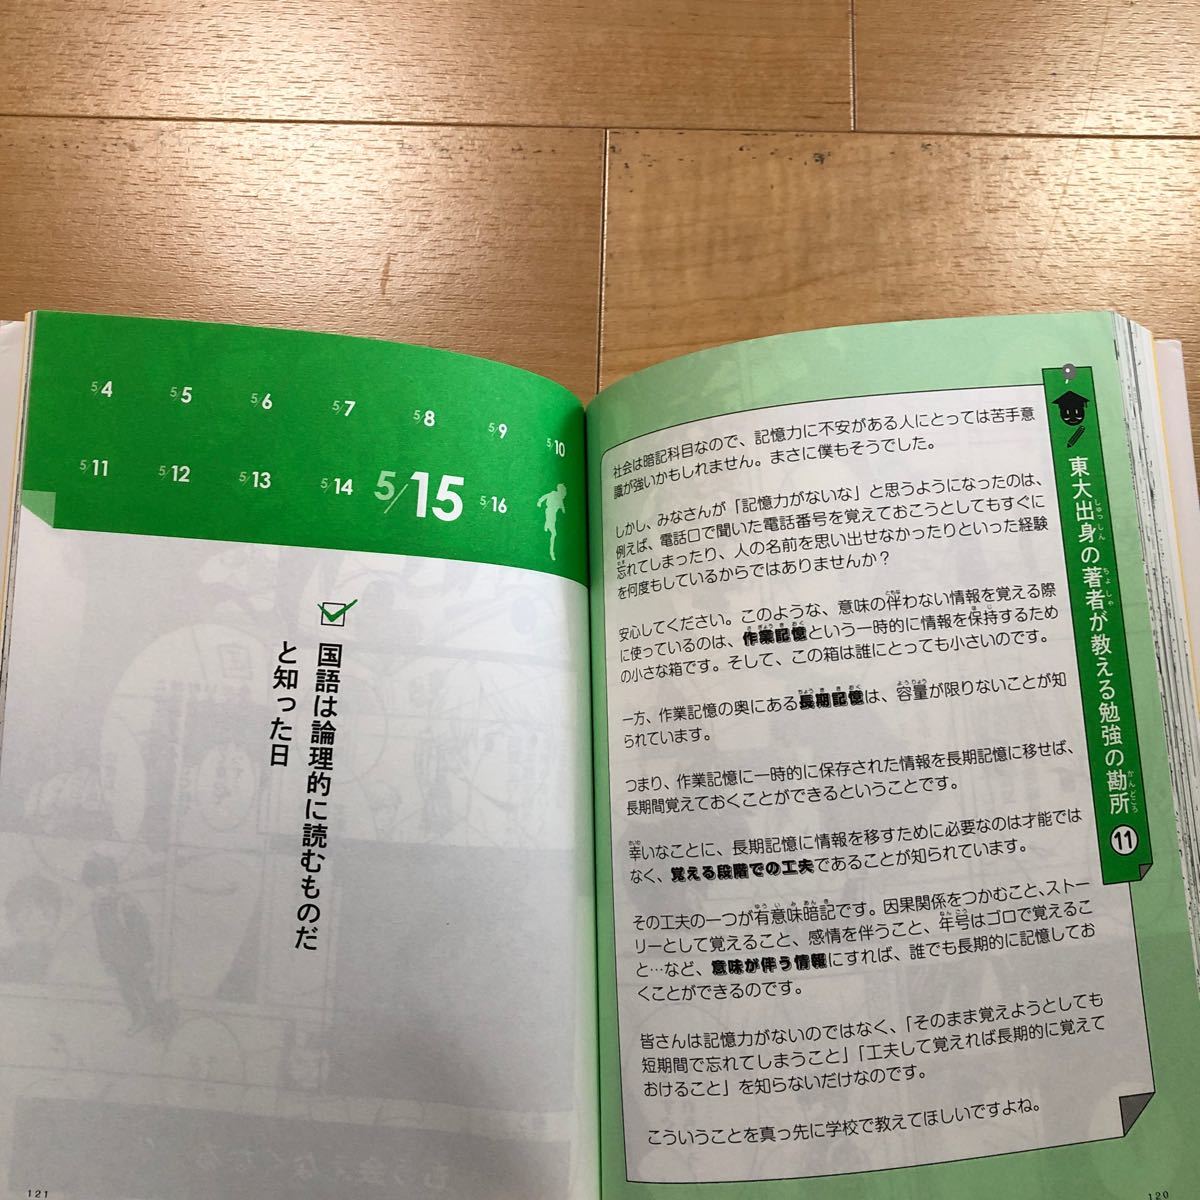 東大出身の著者が教える勉強の勘所 11
社会は暗記科目なので、記憶力に不安がある人にとっては苦手意
識が強いかもしれません。まさに僕もそうでした。
しかし、みなさんが「記憶力がないな」と思うようになったのは、
例えば、電話口で聞いた電話番号を覚えておこうとしてもすぐに
忘れてしまったり、人の名前を思い出せなかったりといった経験
を何度もしているからではありませんか？
安心してください。このような、意味の伴わない情報を覚える際
に使っているのは、作業記憶という一時的に情報を保持するため
の小さな箱です。そして、この箱は誰にとっても小さいのです。
一方、作業記憶の奥にある長期記憶は、容量が限りないことが知
られています。
つまり、作業記憶に一時的に保存された情報を長期記憶に移せば、
長期間覚えておくことができるということです。
幸いなことに、長期記憶に情報を移すために必要なのは才能では
なく、覚える段階での工夫であることが知られています。
その工夫の一つが有意味暗記です。因果関係をつかむこと、ストー
リーとして覚えること、感情を伴うこと、年号はゴロで覚えるこ
と…など、意味が伴う情報にすれば、誰でも長期的に記憶してお
くことができるのです。
皆さんは記憶力がないのではなく、「そのまま覚えようとしても
短期間で忘れてしまうこと」「工夫して覚えれば長期的に覚えて
おけること」を知らないだけなのです。
こういうことを真っ先に学校で教えてほしいですよね。
120
5/4 5/5 5/6 5/7 5/8 5/9 5/10
5/11 5/12 5/13 5/14 5/15 5/16
国語は論理的に読むものだ
と知った日
121